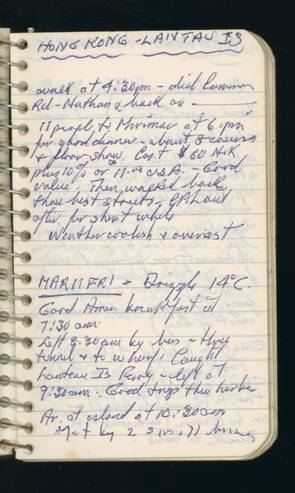 HONG KONG - LANTAU IS
walk at 4:30pm - did Cameron
Rd - Nathan & back on
11 people to Miramar at 6 pm
for good dinner - about 8 courses
& floor show. Cost $60 H.K
plus 10% or U.S.A. - Good
value. Then walked back
thru best streets - out
after for short while
Weather coolish & overcast
MAR 11 FRI - Drizzle 14°C.
Good Amer breakfast at
7:30 am.
Left 8:30am by bus - thru
tunnel & to wharf. Caught
Lantau Is Ferry - left at
9:30am. Good trip thru harbor
Ar. at island at 10:30am
Met by 2 small buses